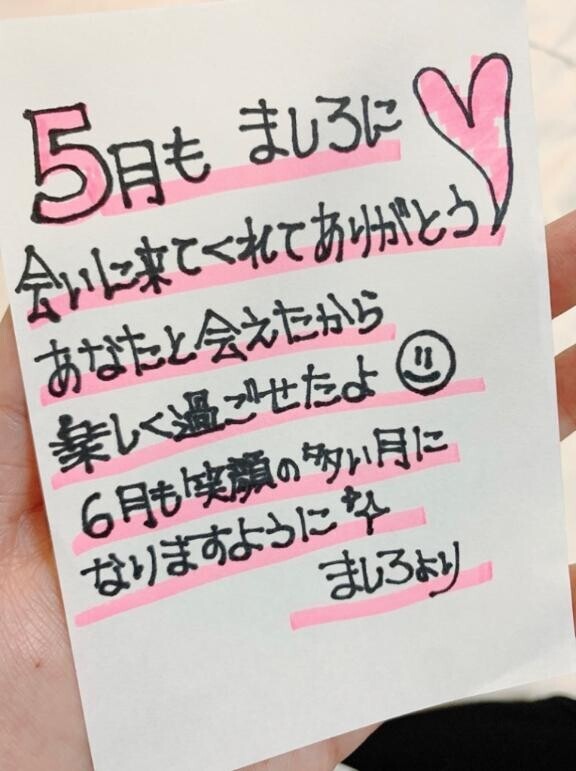 5月も ましろに
会いに来てくれてありがとう
あなたと会えたから
楽しく過ごせたよ
6月も笑顔の多い月に
なりますように
ましろより